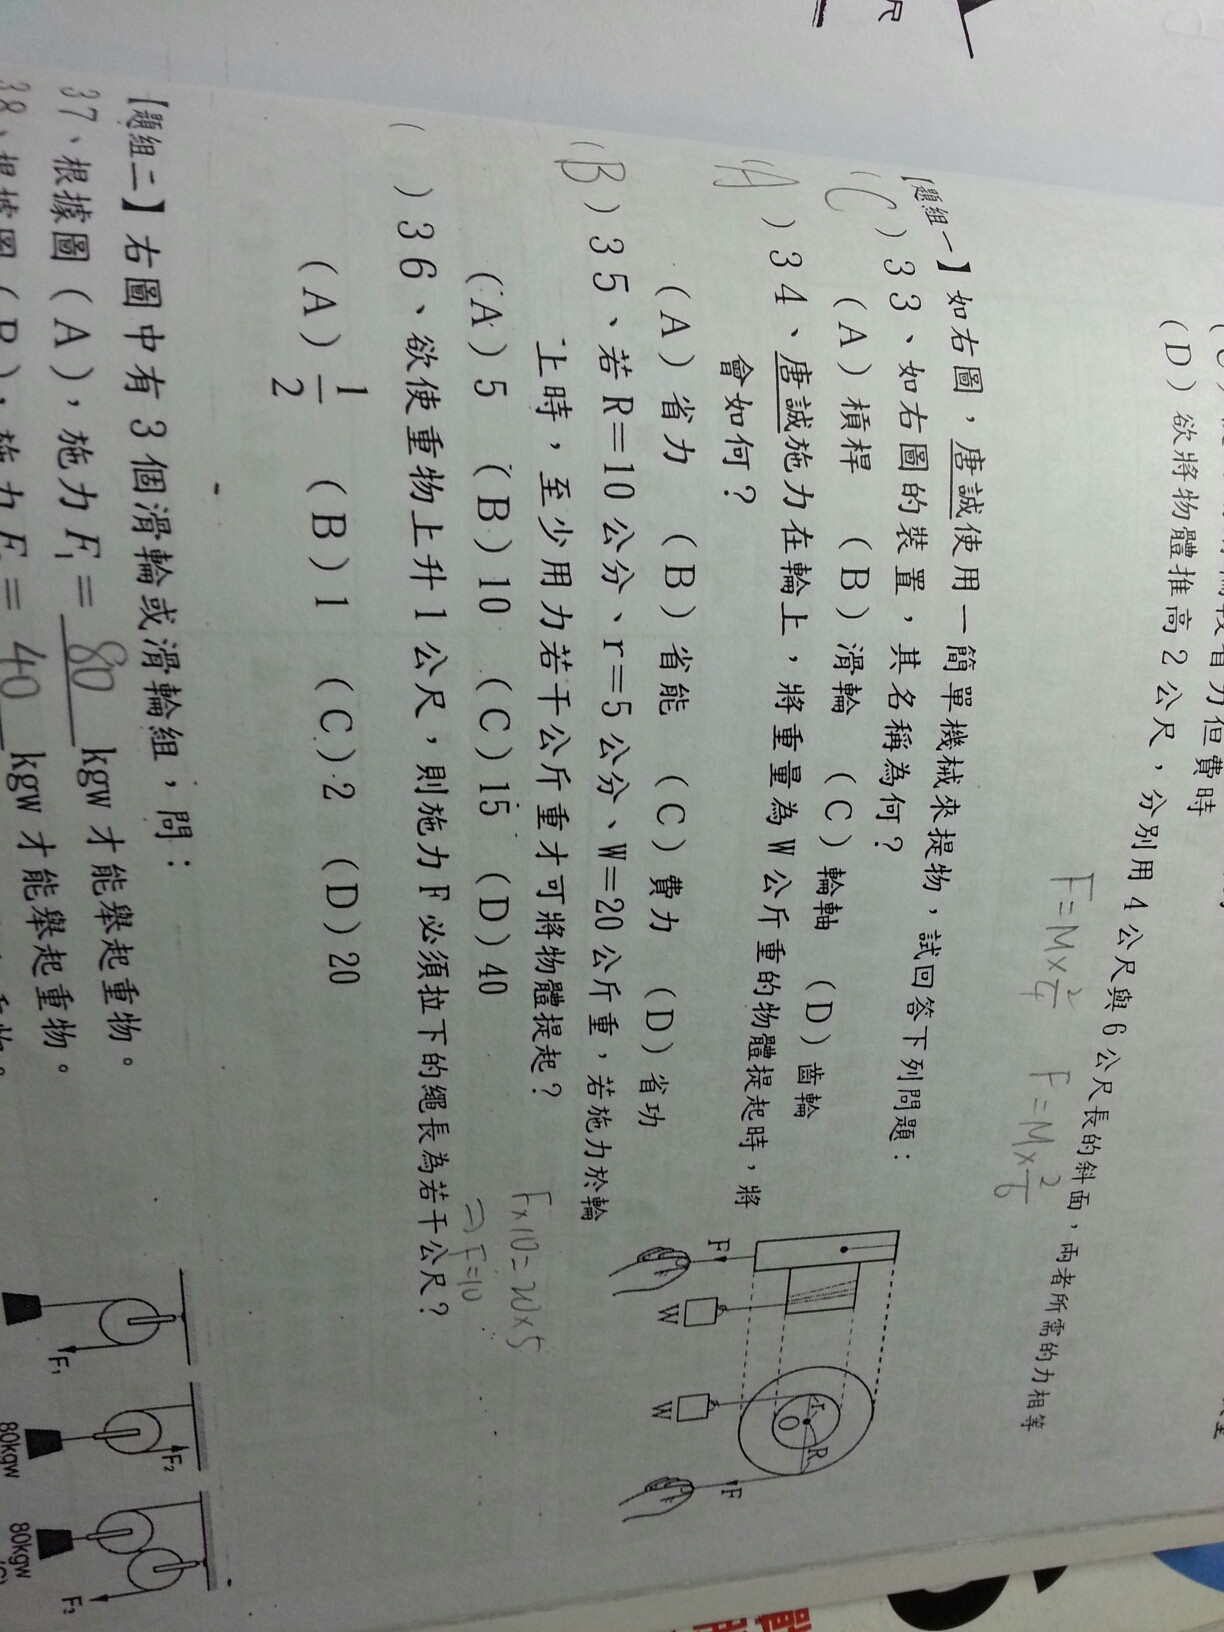 (D)欲將物體推高2公尺，分別用4公尺與6公尺長的斜面，兩者所需的力相等
F=M×2/4  F=M×2/6
【題組一】如右圖，唐誠使用一簡單機械來提物，試回答下列問題：
(C)33、如右圖的裝置，其名稱為何？
(A)槓桿 (B)滑輪 (C)輪軸 (D)齒輪
(A)34、唐誠施力在輪上，將重量為W公斤重的物體提起時，將
會如何？
(A)省力 (B)省能 (C)費力 (D)省功
(B)35、若R=10公分、r=5公分、W=20公斤重，若施力於輪
上時，至少用力若干公斤重才可將物體提起？
(A)5 (B)10 (C)15 (D)40
F×10=20×5
⇒F=10
( )36、欲使重物上升1公尺，則施力F必須拉下的繩長為若干公尺？
(A)1/2 (B)1 (C)2 (D)20
F
W
W
r
O
R
F
【題組二】右圖中有3個滑輪或滑輪組，問：
37、根據圖(A)，施力F₁=80 kgw才能舉起重物。
38、根據圖(B)，施力F₂=40 kgw才能舉起重物。
F₁
F₂
80kgw
F₃
80kgw